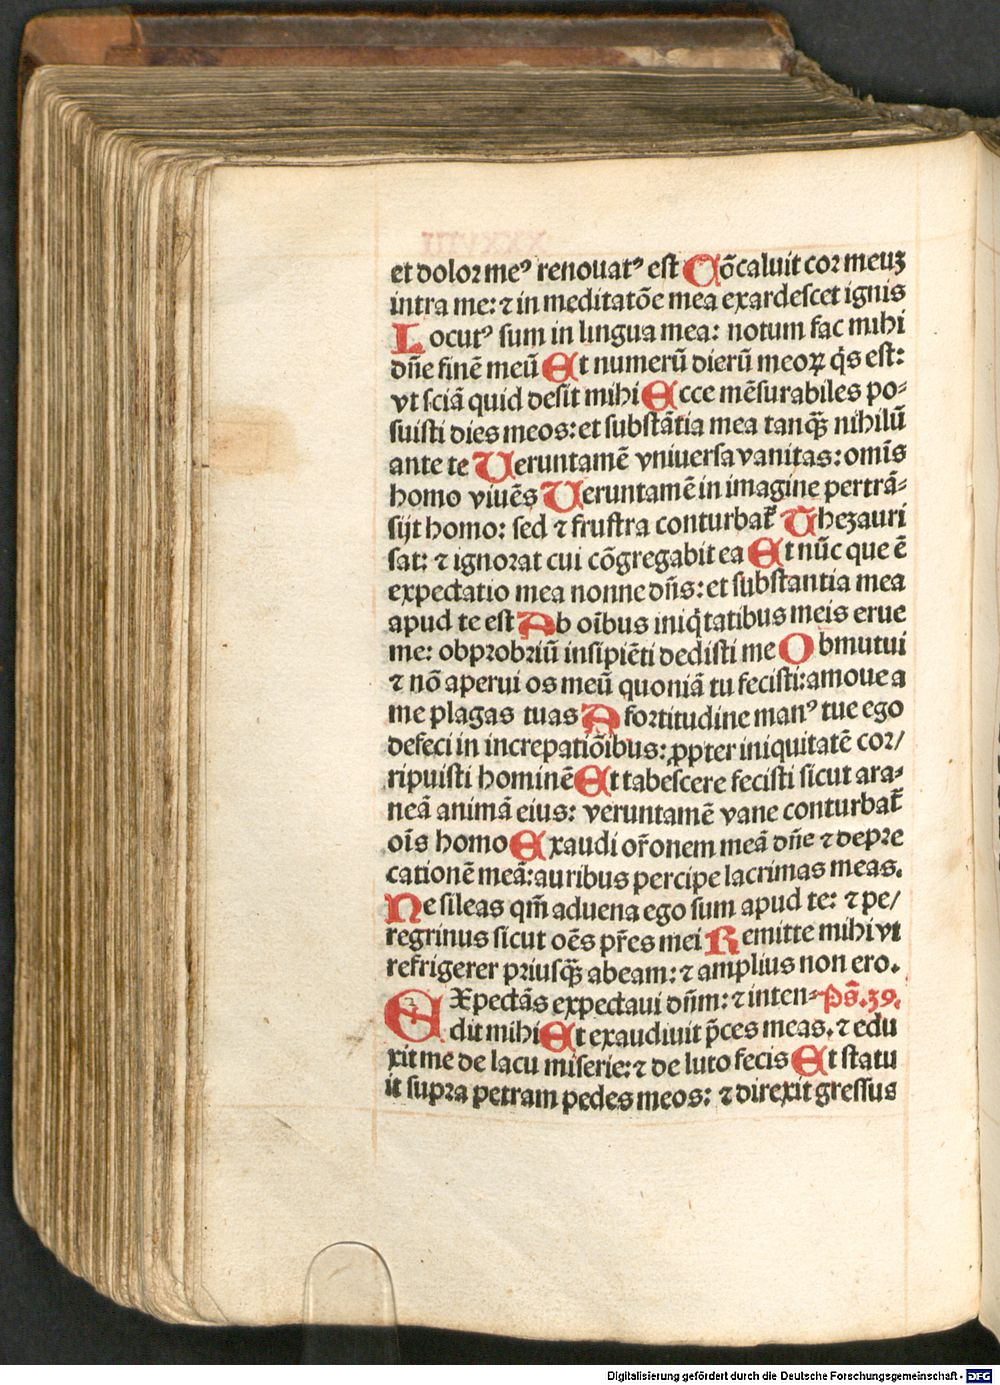 et dolor meꝰ renouatꝰ est Cōcaluit cor meuꝫ
intra me: ⁊ in meditatōe mea exardescet ignis
Locutꝰ sum in lingua mea: notum fac mihi
dñe finē meū Et numerū dierū meoꝝ q̇s est:
vt sciā quid desit mihi Ecce mēsurabiles po⸗
suisti dies meos: et substātia mea tanq̄ꝫ nihilū
ante te Ueruntamē vniuersa vanitas: omīs
homo viuēs Ueruntamē in imagine pertrā⸗
sijt homo: sed ⁊ frustra conturbat᷑ Thezauri
sat: ⁊ ignorat cui cōgregabit ea Et nūc que ē
expectatio mea nonne dñs: et substantia mea
apud te est Ab oībus iniq̇tatibus meis erue
me: obprobriū insipiēti dedisti me Obmutui
⁊ nō aperui os meū quoniā tu fecisti: amoue a
me plagas tuas A fortitudine manꝰ tue ego
defeci in increpatiōibus: ꝓpter iniquitatē cor/
ripuisti hominē Et tabescere fecisti sicut ara⸗
neā animā eius: veruntamē vane conturbat᷑
oīs homo Exaudi or̄onem meā dñe ⁊ depre
cationē meā: auribus percipe lacrimas meas.
Ne sileas qm̄ aduena ego sum apud te: ⁊ pe/
regrinus sicut oēs pr̄es mei Remitte mihi vt
refrigerer priusq̄ꝫ abeam: ⁊ amplius non ero.
EXpectās expectaui dñm: ⁊ inten⸗ Ps̄. 39.
dit mihi Et exaudiuit p̄ces meas. ⁊ edu
xit me de lacu miserie: ⁊ de luto fecis Et statu
it supra petram pedes meos: ⁊ direxit gressus
Digitalisierung gefördert durch die Deutsche Forschungsgemeinschaft - DFG